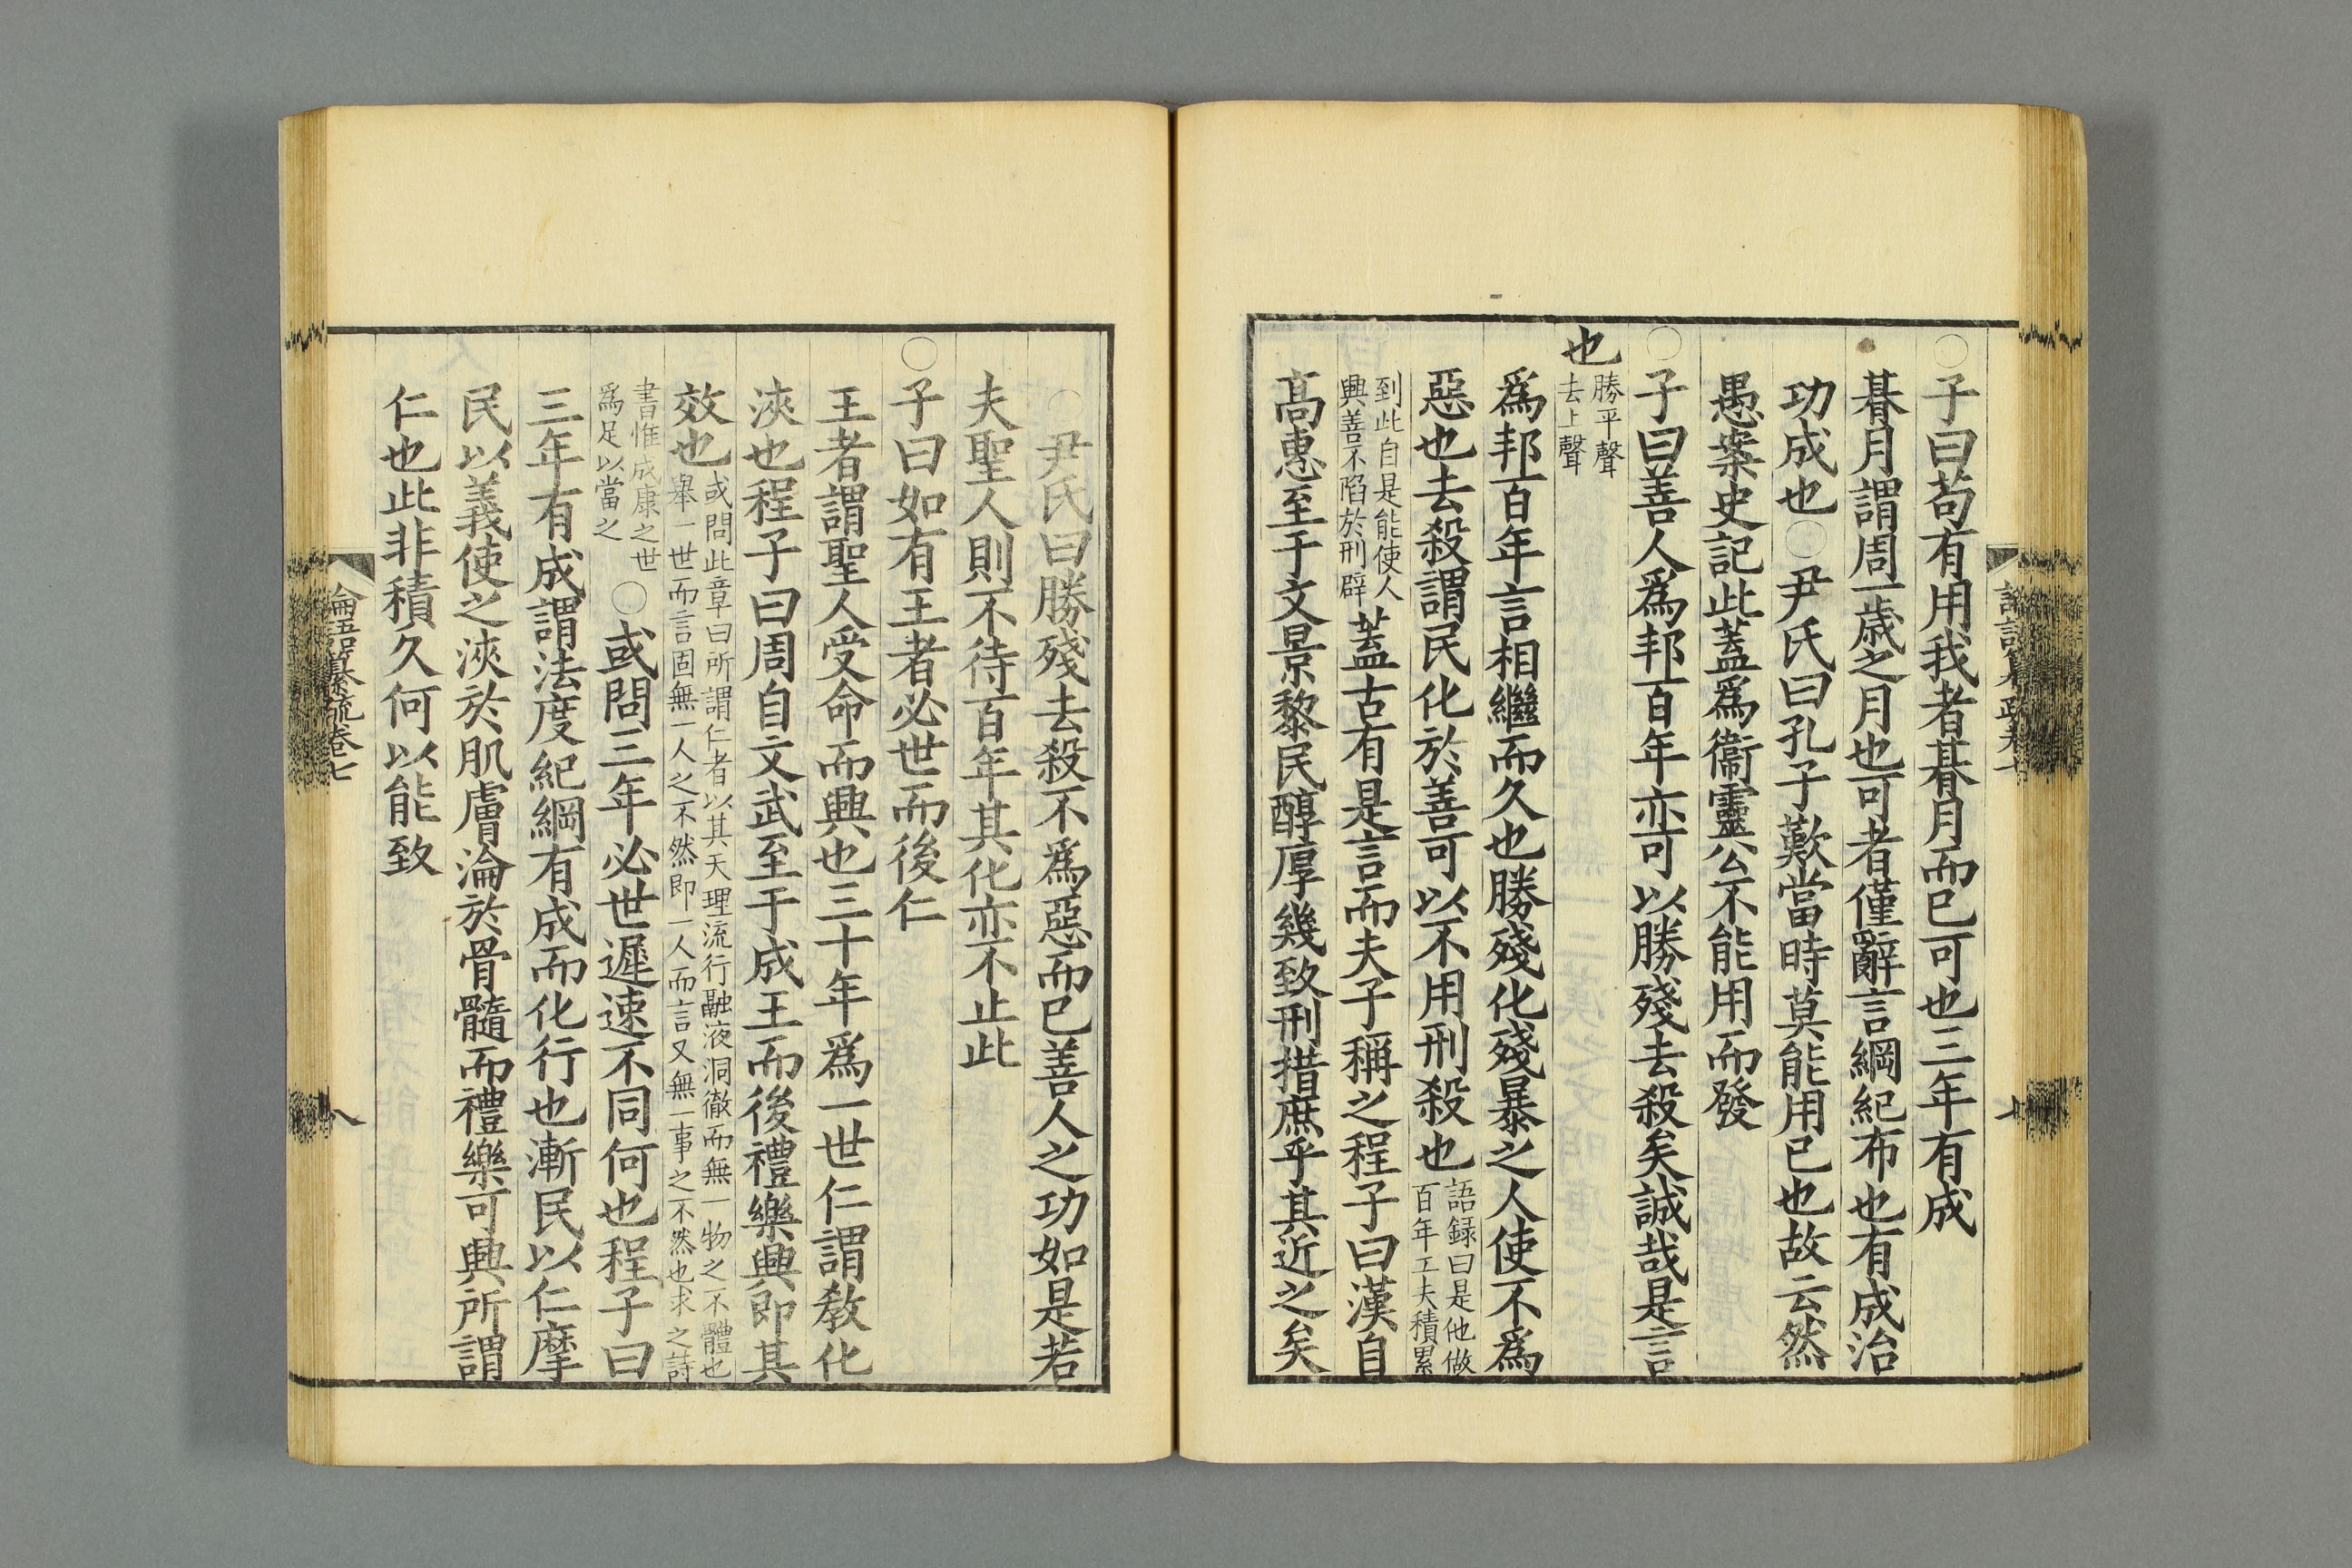 ○子曰苟有用我者朞月而已可也三年有成
朞月謂周一歲之月也可者僅辭言綱紀布也有成治
功成也○尹氏曰孔子歎當時莫能用己也故云然
愚案史記此蓋爲衞靈公不能用而發
○子曰善人爲邦百年亦可以勝殘去殺矣誠哉是言
也勝平聲去上聲
爲邦百年言相繼而久也勝殘化殘暴之人使不爲
惡也去殺謂民化於善可以不用刑殺也語録曰是他做百年工夫積累
到此自是能使人興善不陷於刑辟蓋古有是言而夫子稱之程子曰漢自
高惠至于文景黎民醇厚幾致刑措庶乎其近之矣
○尹氏曰勝殘去殺不爲惡而已善人之功如是若
夫聖人則不待百年其化亦不止此
○子曰如有王者必世而後仁
王者謂聖人受命而興也三十年爲一世仁謂教化
浹也程子曰周自文武至于成王而後禮樂興即其
效也或問此章曰所謂仁者以其天理流行融液洞徹而無一物之不體也舉一世而言固無一人之不然即一人而言又無一事之不然也求之詩
書惟成康之世爲足以當之○或問三年必世遲速不同何也程子曰
三年有成謂法度紀綱有成而化行也漸民以仁摩
民以義使之浹於肌膚淪於骨髓而禮樂可興所謂
仁也此非積久何以能致
論語纂疏卷七
八